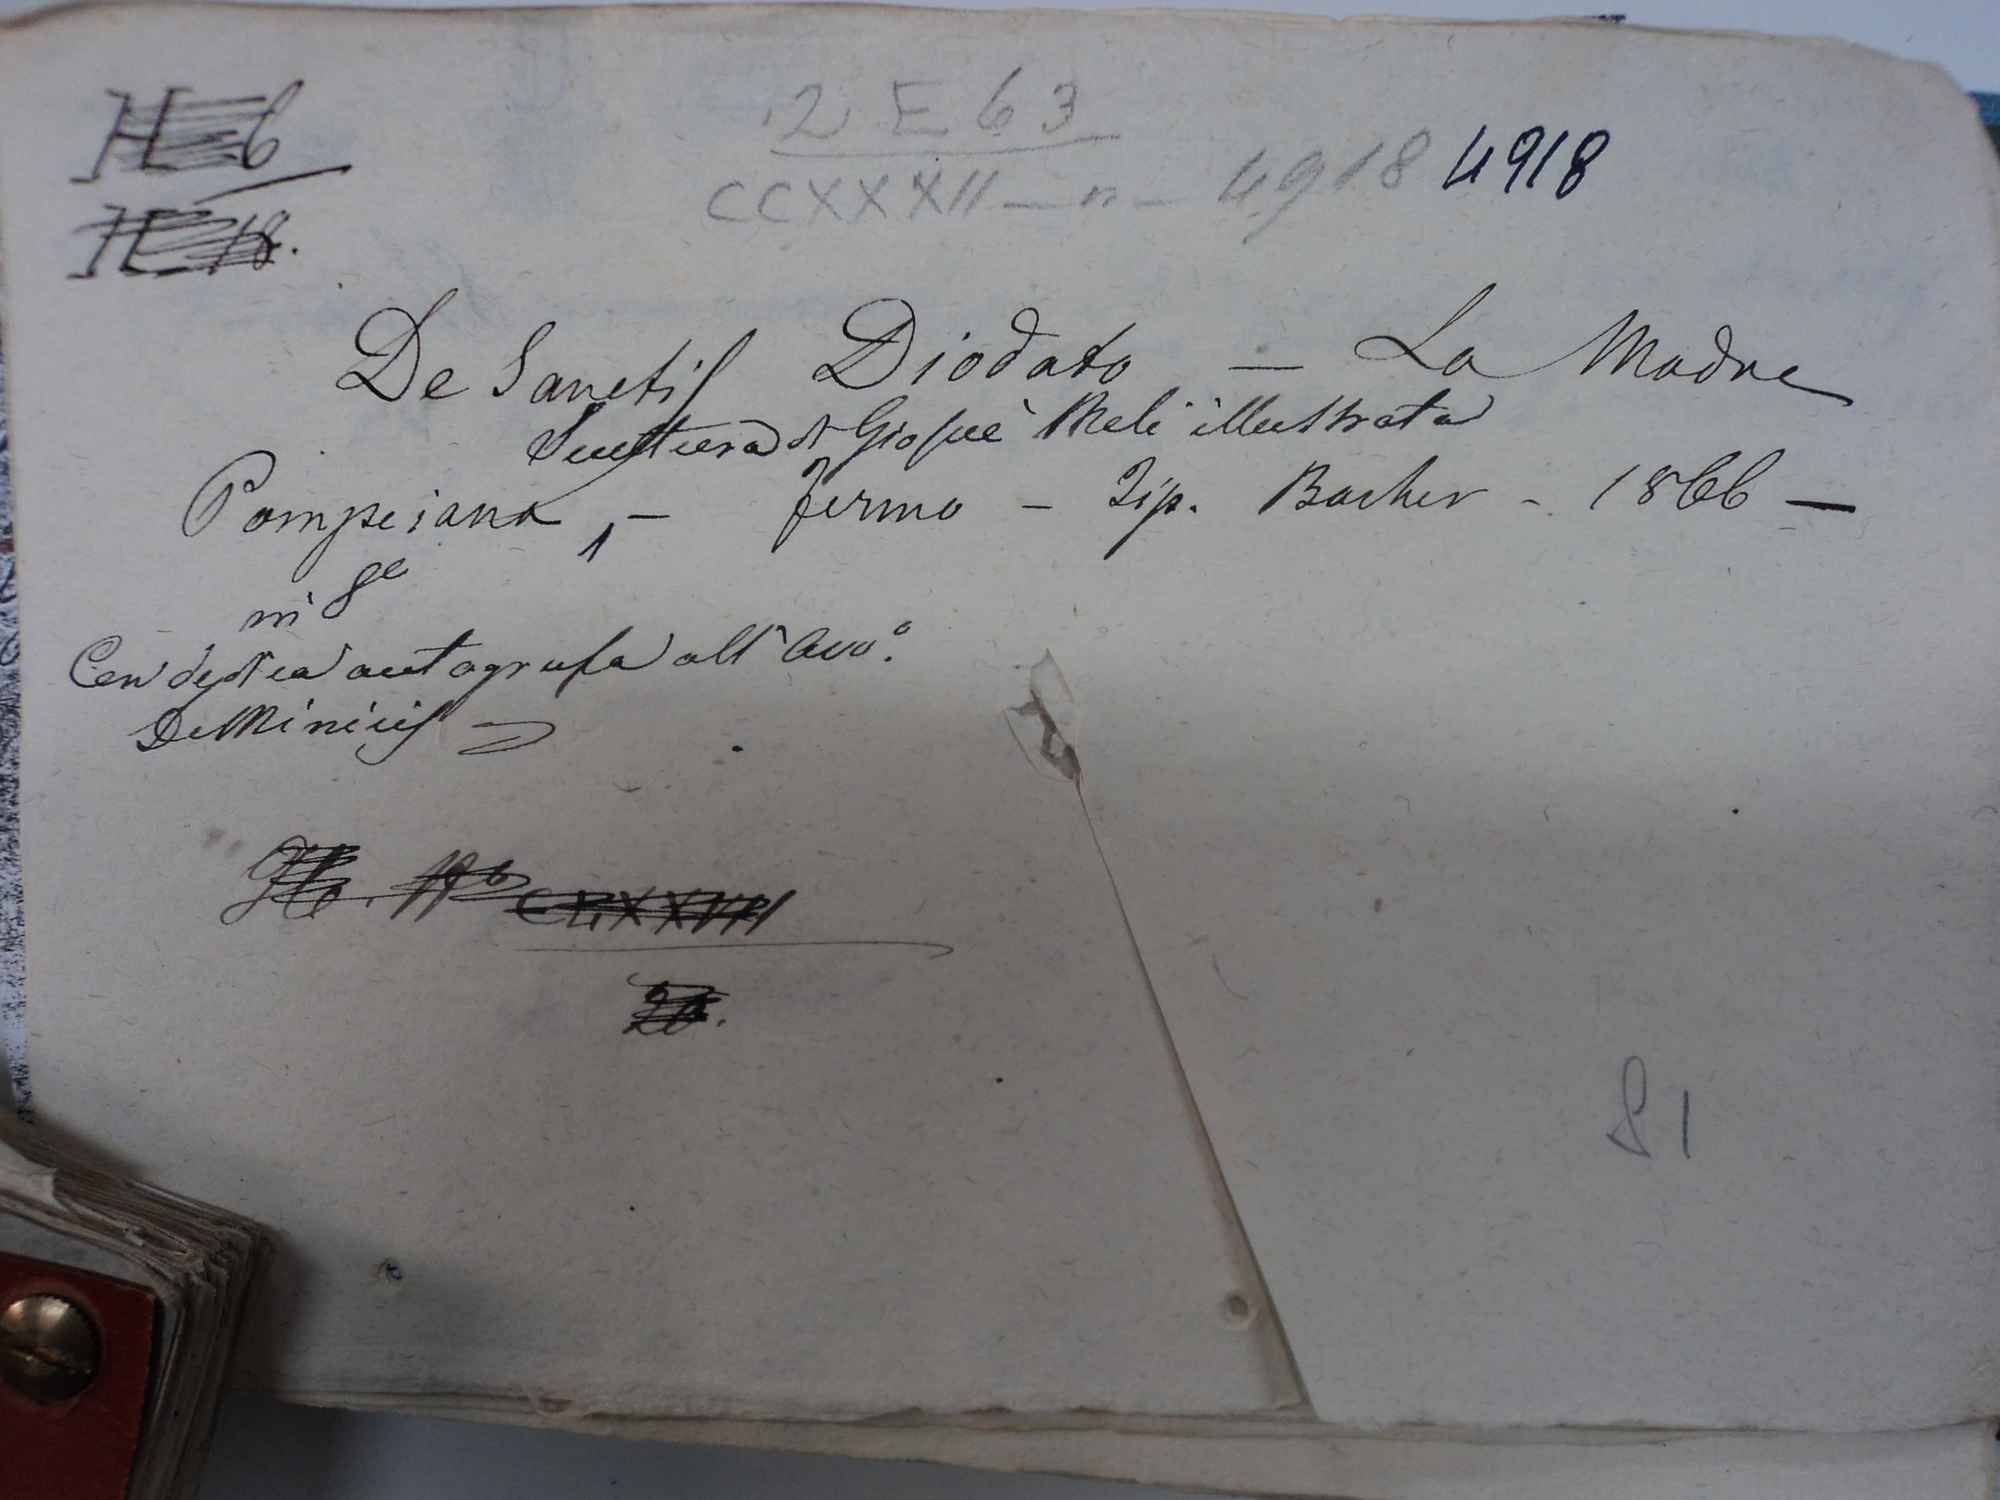 H 6
H 18.
2 E 63
CCXXXII - n - 4918 4918
De Sanctis Diodato - La Madre
Scultura di Giosuè Meli illustrata
Pompeiana, - Fermo - Tip. Bacher - 1866 -
in 8°
Con dedica autografa all'Avv.°
De Minicis
CLXXVIII
20.
81